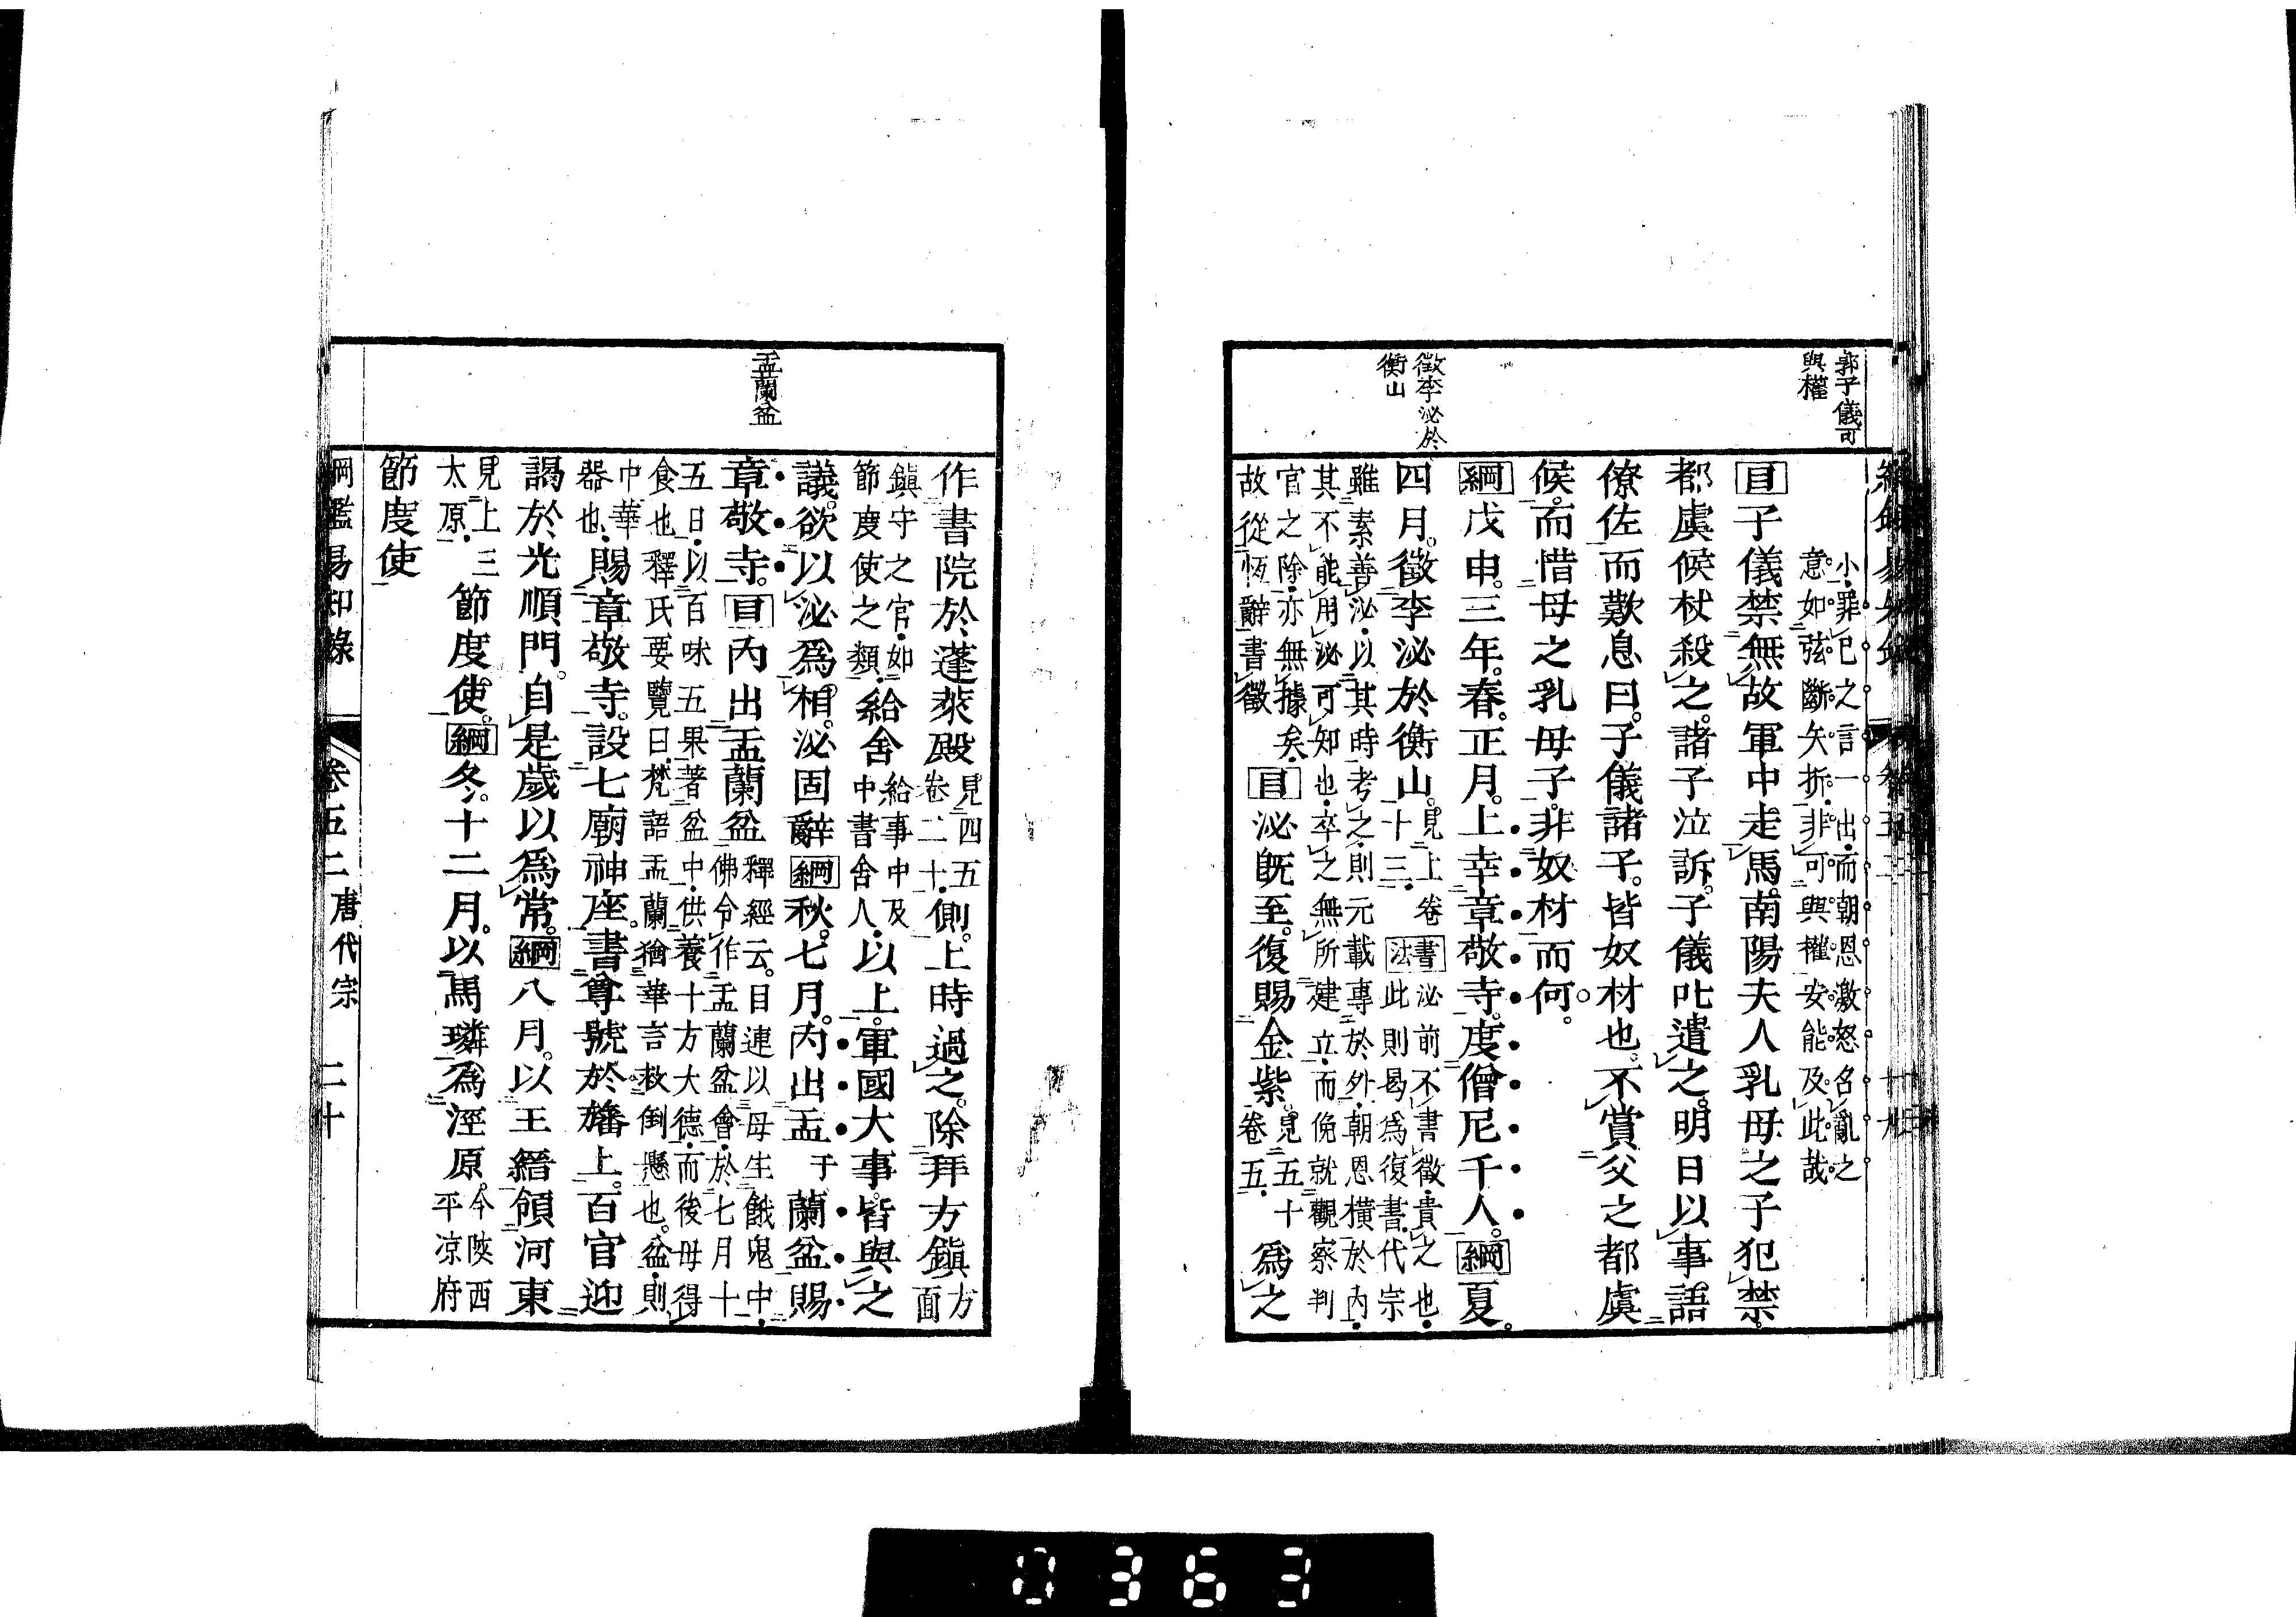 郭子儀可
與權
徵李泌於
衡山
小罪已之言一出而朝恩激怒名亂之
意如弦斷矢折非可與權安能及此哉
目子儀禁無故軍中走馬南陽夫人乳母之子犯禁
都虞候杖殺之諸子泣訴子儀叱遣之明日以事語
僚佐而歎息曰子儀諸子皆奴材也不賞父之都虞
候而惜母之乳母子非奴材而何
綱戊申三年春正月上幸章敬寺度僧尼千人綱夏
四月徵李泌於衡山見上卷
十三書法泌前不書徵貴之也
此則曷爲復書代宗
雖素善泌以其時考之則元載專於外朝恩橫於內
其不能用泌可知也卒之無所建立而俛就觀察判
官之除亦無據矣
故從恆辭書徵目泌旣至復賜金紫見五十
卷五爲之
盂蘭盆
作書院於蓬萊殿見四五
卷二十側上時過之除拜方鎭方
面
鎭守之官如
節度使之類給舍給事中及
中書舍人以上軍國大事皆與之
議欲以泌爲相泌固辭綱秋七月內出盂于蘭盆賜
章敬寺目內出盂蘭盆釋經云目連以母生餓鬼中
佛令作盂蘭盆會於七月十
五日以百味五果著盆中供養十方大德而後母得
食也釋氏要覽曰梵語盂蘭猶華言救倒懸也盆則
中華
器也賜章敬寺設七廟神座書尊號於旛上百官迎
謁於光順門自是歲以爲常綱八月以王縉領河東
見上三
太原節度使綱冬十二月以馬璘爲涇原今陝西
平凉府
節度使
綱鑑易知錄 卷五二 唐代宗 二十
0363